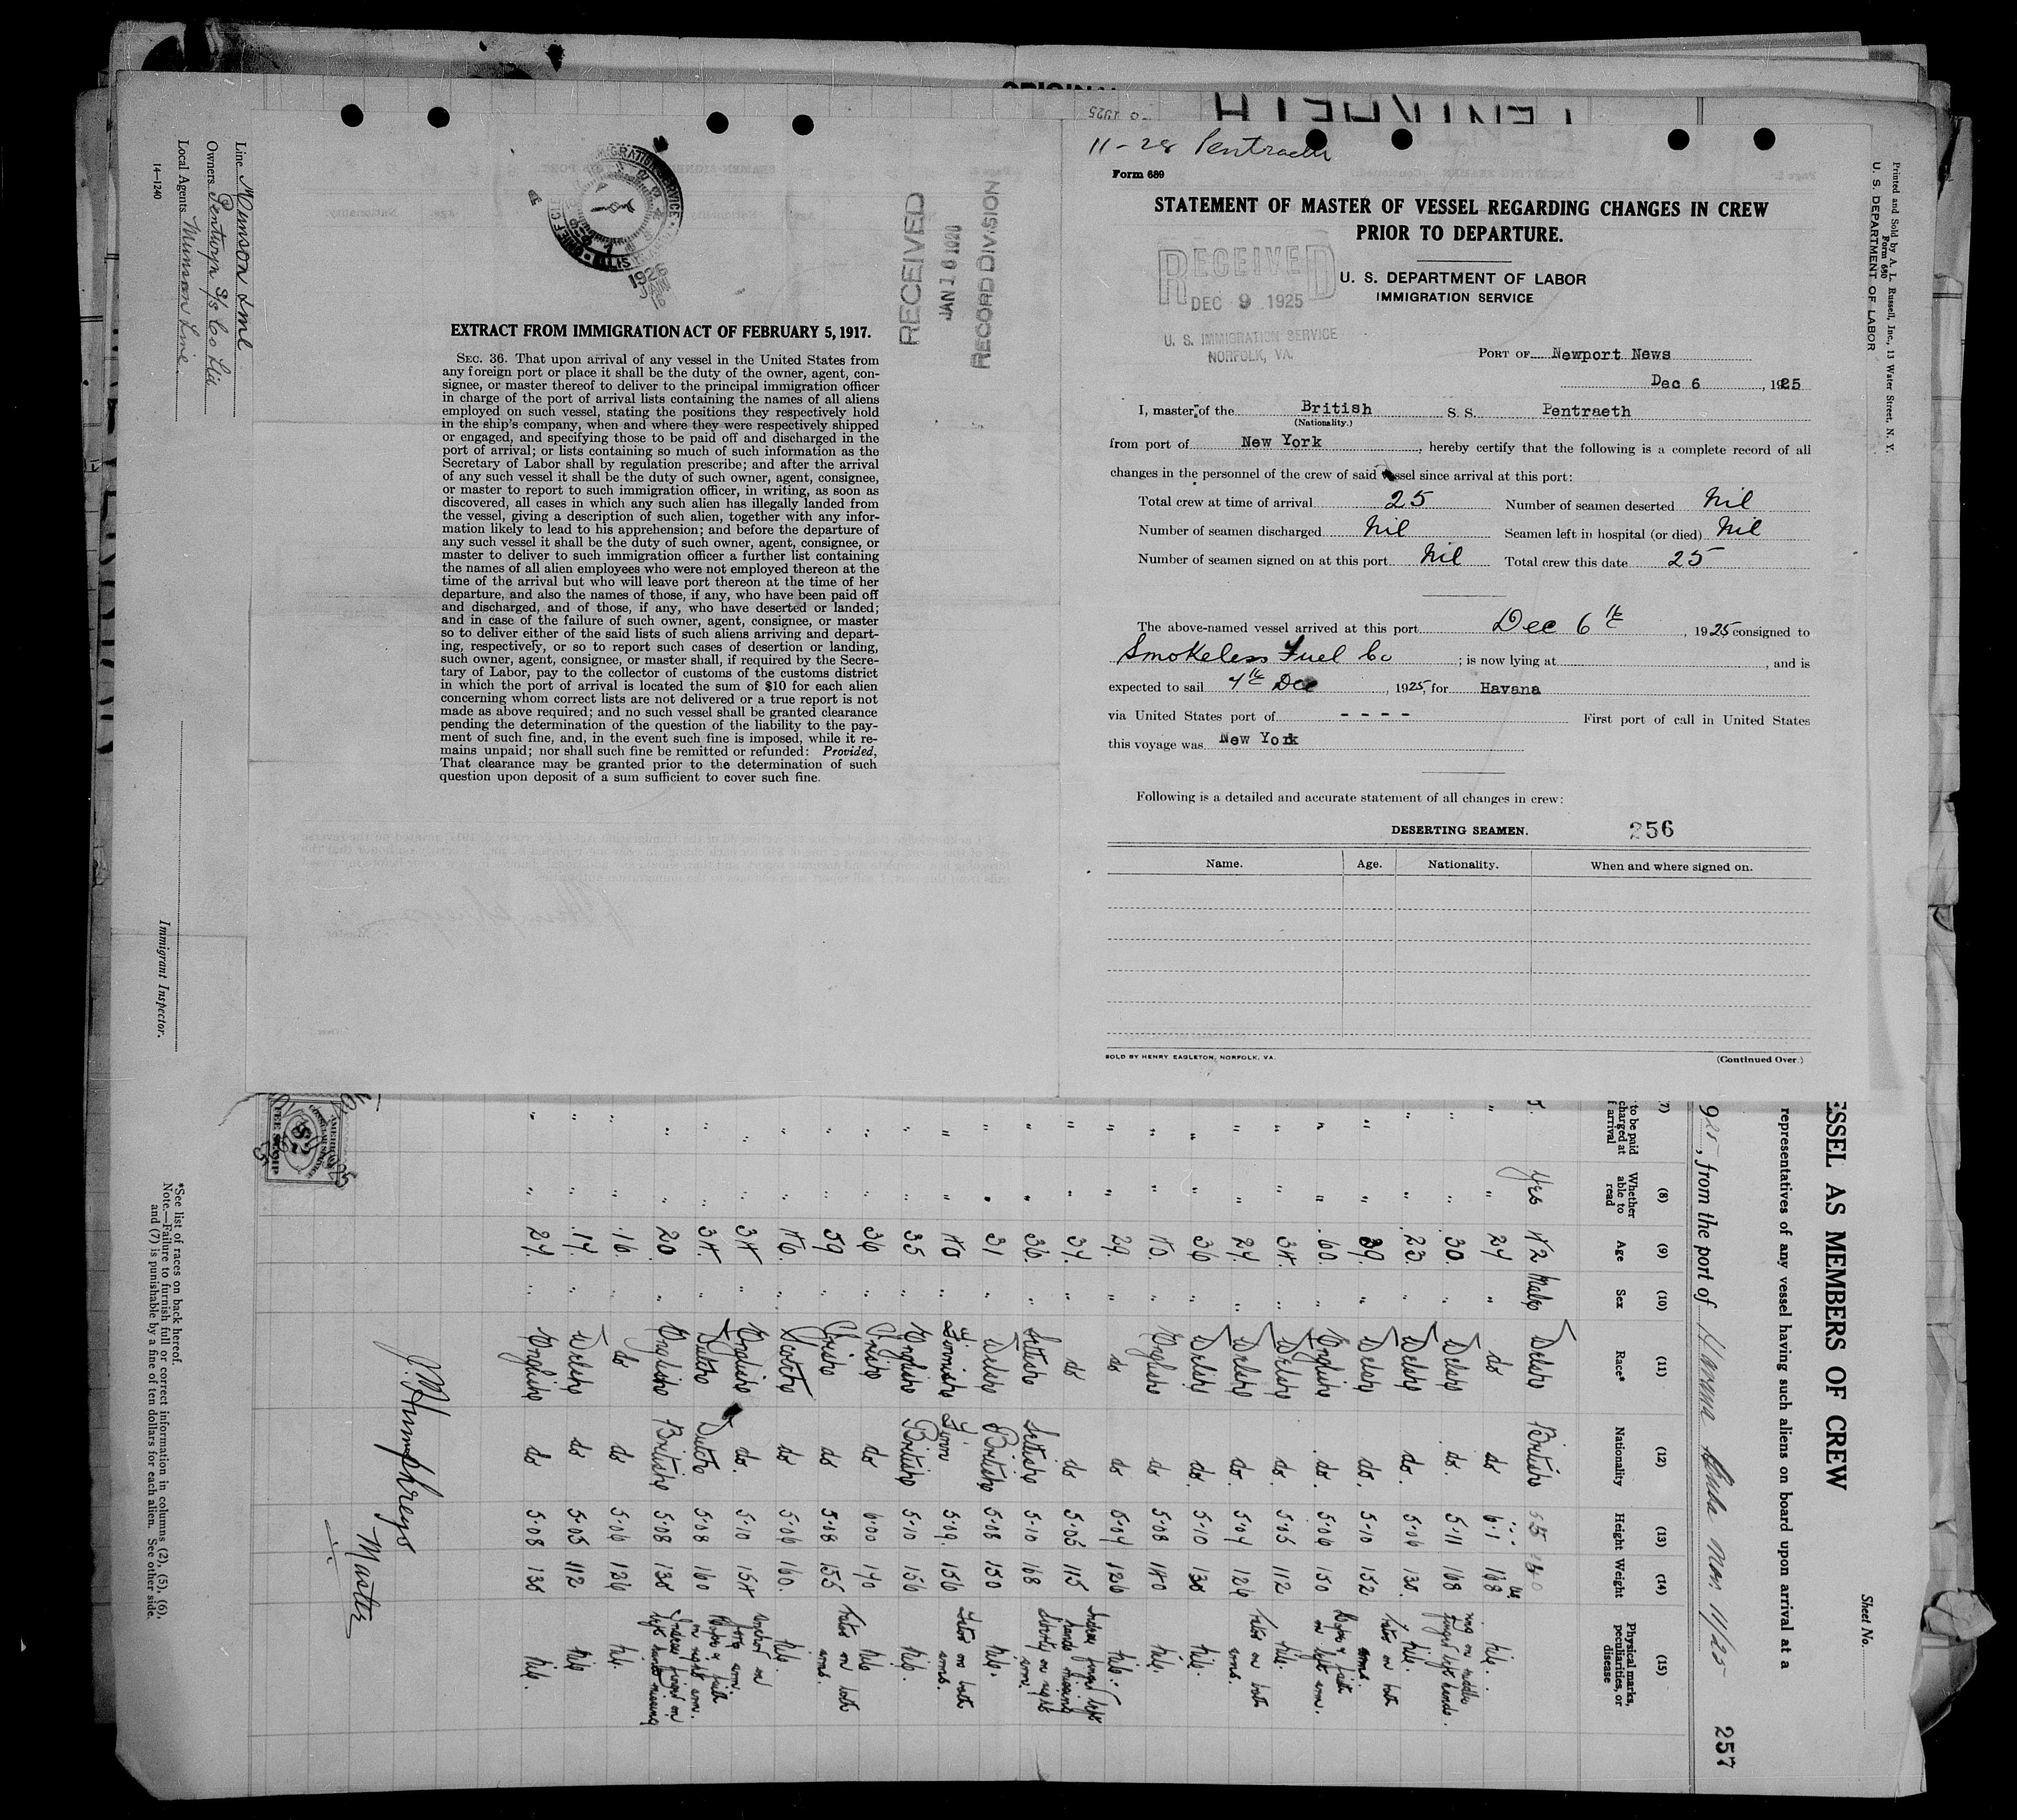 11-28 Pentraeth
Form 689
STATEMENT OF MASTER OF VESSEL REGARDING CHANGES IN CREW
PRIOR TO DEPARTURE.
U. S. DEPARTMENT OF LABOR
IMMIGRATION SERVICE
RECEIVED
DEC 9 1925
U. S. IMMIGRATION SERVICE
NORFOLK, VA.
PORT OF Newport News
Dec 6, 1925
I, master, of the British S. S. Pentraeth
(Nationality.)
from port of New York, hereby certify that the following is a complete record of all
changes in the personnel of the crew of said vessel since arrival at this port:
Total crew at time of arrival 25 Number of seamen deserted Nil
Number of seamen discharged Nil Seamen left in hospital (or died) Nil
Number of seamen signed on at this port Nil Total crew this date 25
The above-named vessel arrived at this port Dec 6th, 1925 consigned to
Smokeless Fuel Co; is now lying at , and is
expected to sail 7th Dec, 1925, for Havana
via United States port of - - - - First port of call in United States
this voyage was New York
Following is a detailed and accurate statement of all changes in crew:
DESERTING SEAMEN. 256
Name. Age. Nationality. When and where signed on.
SOLD BY HENRY EAGLETON, NORFOLK, VA. (Continued Over.)
RECEIVED
JAN 16 1926
RECORD DIVISION
1926
EXTRACT FROM IMMIGRATION ACT OF FEBRUARY 5, 1917.
SEC. 36. That upon arrival of any vessel in the United States from
any foreign port or place it shall be the duty of the owner, agent, con-
signee, or master thereof to deliver to the principal immigration officer
in charge of the port of arrival lists containing the names of all aliens
employed on such vessel, stating the positions they respectively hold
in the ship's company, when and where they were respectively shipped
or engaged, and specifying those to be paid off and discharged in the
port of arrival; or lists containing so much of such information as the
Secretary of Labor shall by regulation prescribe; and after the arrival
of any such vessel it shall be the duty of such owner, agent, consignee,
or master to report to such immigration officer, in writing, as soon as
discovered, all cases in which any such alien has illegally landed from
the vessel, giving a description of such alien, together with any infor-
mation likely to lead to his apprehension; and before the departure of
any such vessel it shall be the duty of such owner, agent, consignee, or
master to deliver to such immigration officer a further list containing
the names of all alien employees who were not employed thereon at the
time of the arrival but who will leave port thereon at the time of her
departure, and also the names of those, if any, who have been paid off
and discharged, and of those, if any, who have deserted or landed;
and in case of the failure of such owner, agent, consignee, or master
so to deliver either of the said lists of such aliens arriving and depart-
ing, respectively, or so to report such cases of desertion or landing,
such owner, agent, consignee, or master shall, if required by the Secre-
tary of Labor, pay to the collector of customs of the customs district
in which the port of arrival is located the sum of $10 for each alien
concerning whom correct lists are not delivered or a true report is not
made as above required; and no such vessel shall be granted clearance
pending the determination of the question of the liability to the pay-
ment of such fine, and, in the event such fine is imposed, while it re-
mains unpaid; nor shall such fine be remitted or refunded: Provided,
That clearance may be granted prior to the determination of such
question upon deposit of a sum sufficient to cover such fine.
Printed and Sold by A. L. Russell, Inc., 13 Water Street, N. Y.
Form 680
U. S. DEPARTMENT OF LABOR
Sheet No.
ESSEL AS MEMBERS OF CREW
representatives of any vessel having such aliens on board upon arrival at a
925, from the port of Havana Cuba Nov 11/25
257
(7) (8) (9) (10) (11) (12) (13) (14) (15)
to be paid charged at arrival
Whether able to read
Age
Sex
Race*
Nationality
Height
Weight
Physical marks, peculiarities, or disease
Yes 42 Male Welsh British
" 27 " do do 6.1 168 Nil.
" 30. " Welsh do. 5.11 168
" 23. " Welsh do. 5.06 138. Nil.
" 39. " Welsh do. 5.10 152
" 60. " English do. 5.06 150
" 34. " Welsh do. 5.05 112 Nil.
" 27. " Welsh do. 5.07 126
" 36 " Welsh do. 5.10 138 Nil.
" 40. " English do 5.08 140 Nil.
" 29. " do do 5.04 126 Nil.
" 37. " do do 5.05 115
" 36. " 5.10 168
" 31 " Welsh British 5.08 150 Nil.
" 40 " Finnish Finn 5.09. 156
" 35 " English British 5.10 156 Nil.
" 36 " Irish do 6.00 170 Nil
" 39 " Irish do 5.08 155
" 46. " Scotch do 5.06 160. Nil.
" 34 " English do. 5.10 154
" 34. " Dutch Dutch 5.08 160
" 20. " English British 5.08 138
" 16. " do do 5.06 126 Nil.
" 17. " Welsh do 5.05 112 Nil
" 27. " English do 5.08 138 Nil.
J. M. Humphreys
Master
*See list of races on back hereof.
Note.—Failure to furnish full or correct information in columns (2), (5), (6),
and (7) is punishable by a fine of ten dollars for each alien. See other side.
Immigrant Inspector.
Line Munson Line
Owners Pentwyn S/S Co Ltd
Local Agents Munson Line.
14-1240